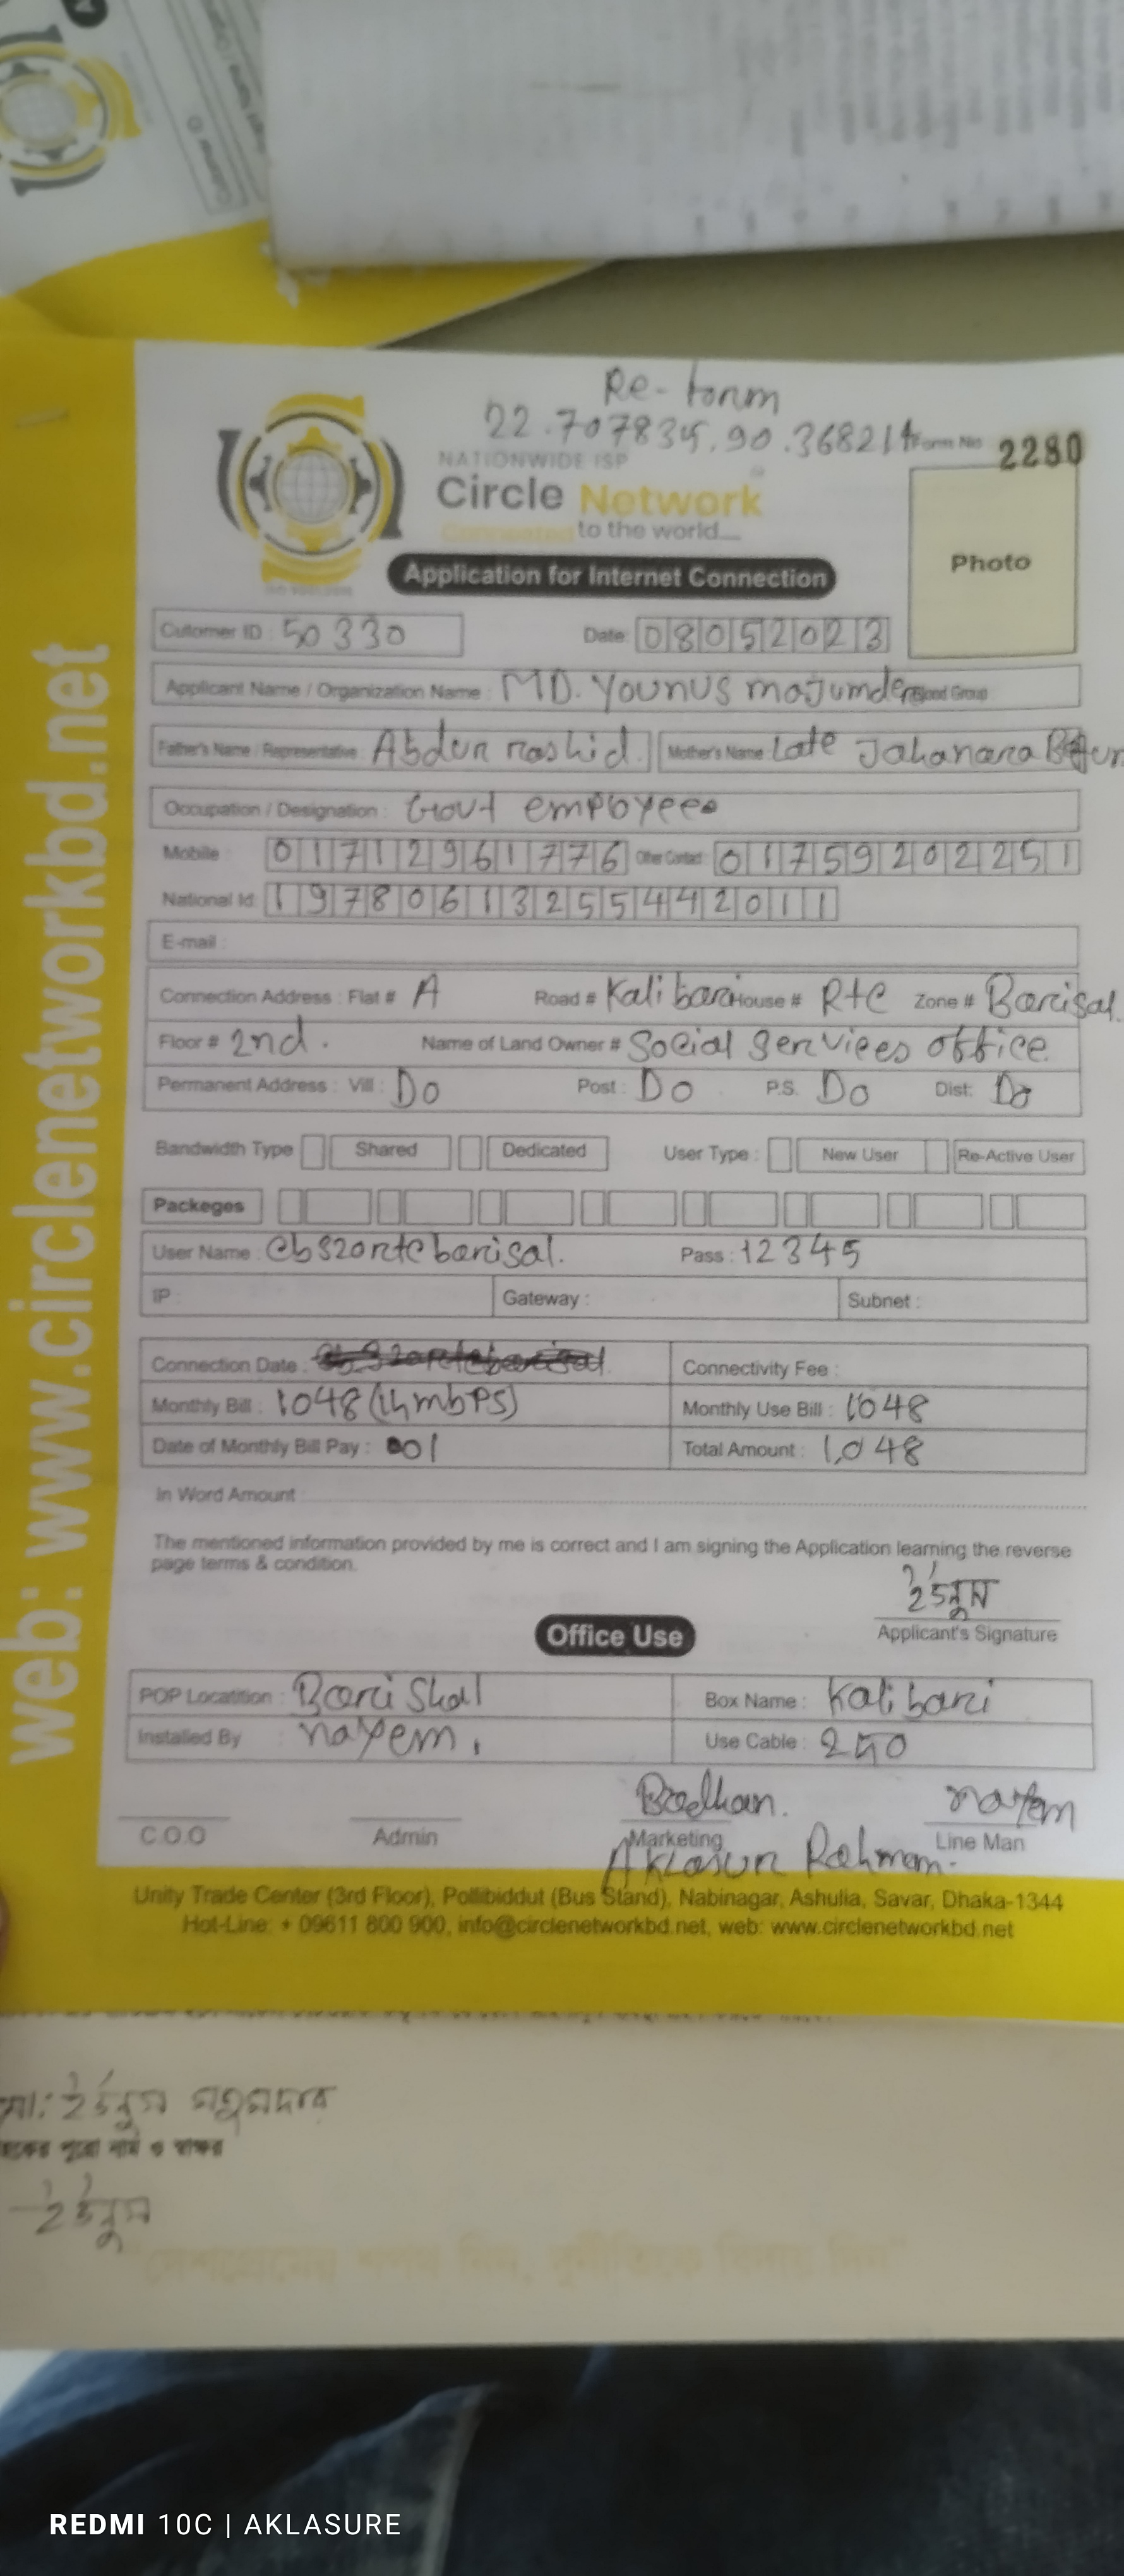 Re-form
22.707834, 90.368214
Form No 2280
NATIONWIDE ISP
Circle Network
Connected to the world....
Photo
Application for Internet Connection
Cutomer ID : 50330 Date: 08052023
Applicant Name / Organization Name : MD. Younus majumder Blood Group
Father's Name / Representative : Abdur rashid. Mother's Name : Late Jahanara
Occupation / Designation : Govt employees
Mobile : 01712961776 Other Contact : 01759202251
National Id: 19780613255442011
E-mail :
Connection Address : Flat # A Road # Kalibari House # Rtc Zone # Barisal.
Floor # 2nd. Name of Land Owner # Social services office
Permanent Address : Vill : Do Post : Do P.S. Do Dist: Do
Bandwidth Type Shared Dedicated User Type : New User Re-Active User
Packeges
User Name : cbs20rtcbarisal. Pass : 12345
IP : Gateway : Subnet :
Connection Date : Connectivity Fee :
Monthly Bill : 1048 (14mbps) Monthly Use Bill : 1048
Date of Monthly Bill Pay : 01 Total Amount : 1,048
In Word Amount
The mentioned information provided by me is correct and I am signing the Application learning the reverse
page terms & condition.
ইউনুস
Applicant's Signature
Office Use
POP Locatition : Bari Shal Box Name : Kalibari
Installed By : nayem. Use Cable : 250
Badhan. nayem
C.O.O Admin Marketing Line Man
Aklasur Rahman.
Unity Trade Center (3rd Floor), Pollibiddut (Bus Stand), Nabinagar, Ashulia, Savar, Dhaka-1344
Hot-Line: + 09611 800 900, info@circlenetworkbd.net, web: www.circlenetworkbd.net
web: www.circlenetworkbd.net
মো: ইউনুস মজুমদার
পুরো নাম ও স্বাক্ষর
ইউনুস
"দেশপ্রেমের শপথ নিন, দুর্নীতিকে বিদায় দিন"
REDMI 10C | AKLASURE